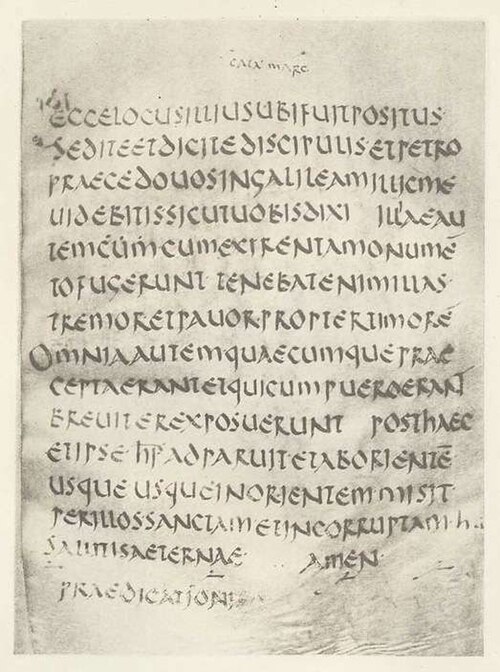 CATA MARC
ECCE LOCUS ILLIUS UBI FUIT POSITUS
SED ITE ET DICITE DISCIPULIS ET PETRO
PRAECEDO UOS IN GALILEAM ILLIC ME
UIDEBITIS SICUT UOBIS DIXI ILLAE AU
TEM CUM CUM EXIRENT A MONUMĒ
TO FUGERUNT TENEBAT ENIM ILLAS
TREMOR ET PAUOR PROPTER TIMORĒ
OMNIA AUTEM QUAECUMQUE PRAE
CEPTA ERANT ET QUI CUM PUERO ERANT
BREUITER EXPOSUERUNT POST HAEC
ET IPSE ADPARUIT ET AB ORIENTĒ
USQUE USQUE IN ORIENTEM MISIT
PER ILLOS SANCTAM ET INCORRUPTAM
SALUTIS AETERNAE AMEN
PRAEDICATIONIS